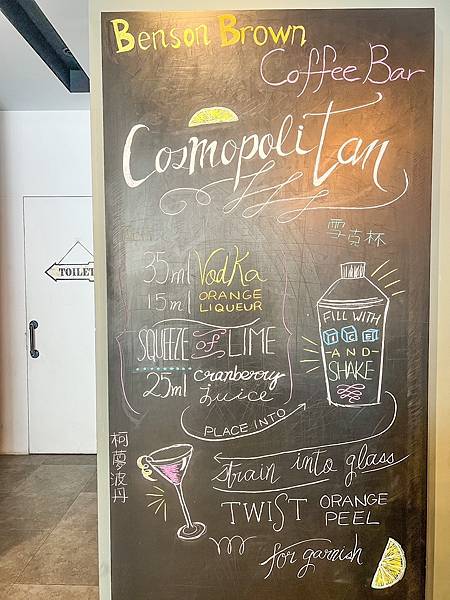 Benson Brown
Coffee Bar
Cosmopolitan
雪克杯
35ml Vodka
15ml ORANGE LIQUEUR
SQUEEZE of LIME
25ml cranberry Juice
PLACE INTO
FILL WITH
ICE
-AND-
SHAKE
柯夢波丹
strain into glass
TWIST ORANGE PEEL
for garnish
TOILET